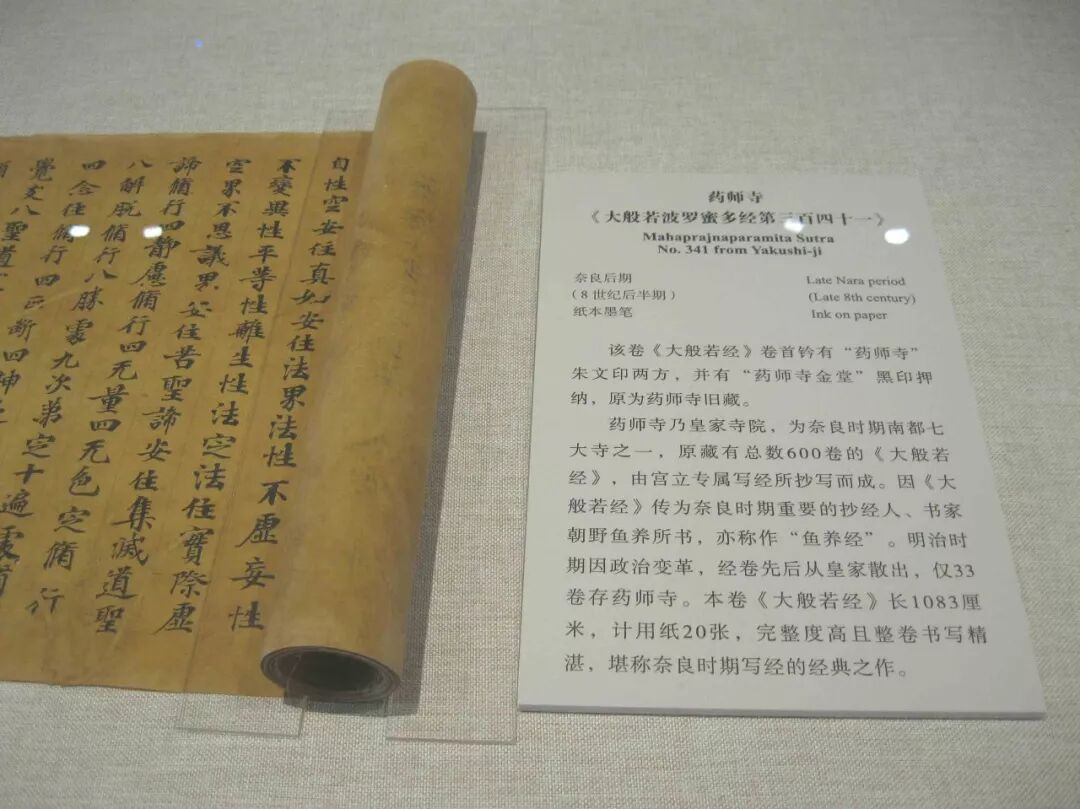 自性空安住真如安住法界法性不虛妄性
不變異性平等性離生性法定法住實際虛
空界不思議界安住苦聖諦安住集滅道聖
諦脩行四靜慮脩行四无量四无色定脩行
八解脫脩行八勝處九次第定十遍處脩
四念住脩行四正斷四神
覺支八聖道
药师寺
《大般若波罗蜜多经第三百四十一》
Mahaprajnaparamita Sutra
No. 341 from Yakushi-ji
奈良后期 Late Nara period
（8世纪后半期） (Late 8th century)
纸本墨笔 Ink on paper
该卷《大般若经》卷首钤有“药师寺”
朱文印两方，并有“药师寺金堂”黑印押
纳，原为药师寺旧藏。
药师寺乃皇家寺院，为奈良时期南都七
大寺之一，原藏有总数600卷的《大般若
经》，由宫立专属写经所抄写而成。因《大
般若经》传为奈良时期重要的抄经人、书家
朝野鱼养所书，亦称作“鱼养经”。明治时
期因政治变革，经卷先后从皇家散出，仅33
卷存药师寺。本卷《大般若经》长1083厘
米，计用纸20张，完整度高且整卷书写精
湛，堪称奈良时期写经的经典之作。